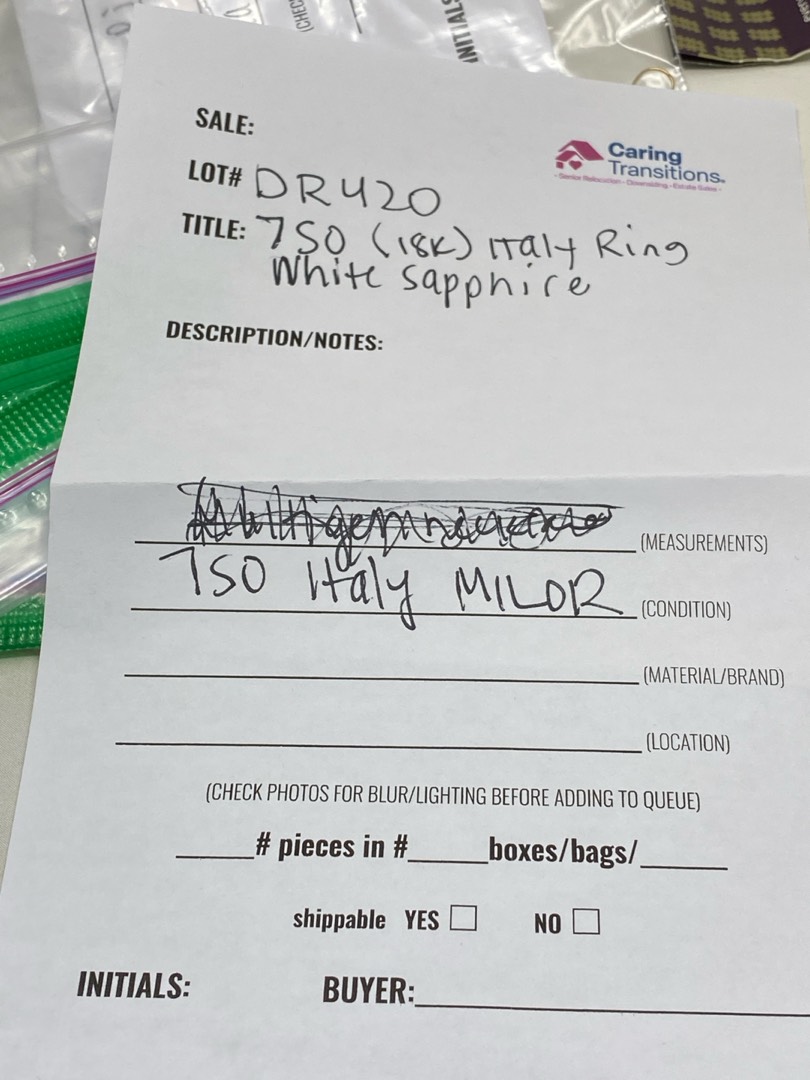 SALE:
Caring
Transitions
- Senior Relocation - Downsizing - Estate Sales -
LOT# DR420
TITLE: 750 (18K) Italy Ring
White Sapphire
DESCRIPTION/NOTES:
(MEASUREMENTS)
750 Italy MILOR (CONDITION)
(MATERIAL/BRAND)
(LOCATION)
(CHECK PHOTOS FOR BLUR/LIGHTING BEFORE ADDING TO QUEUE)
# pieces in # boxes/bags/
shippable YES NO
INITIALS: BUYER: